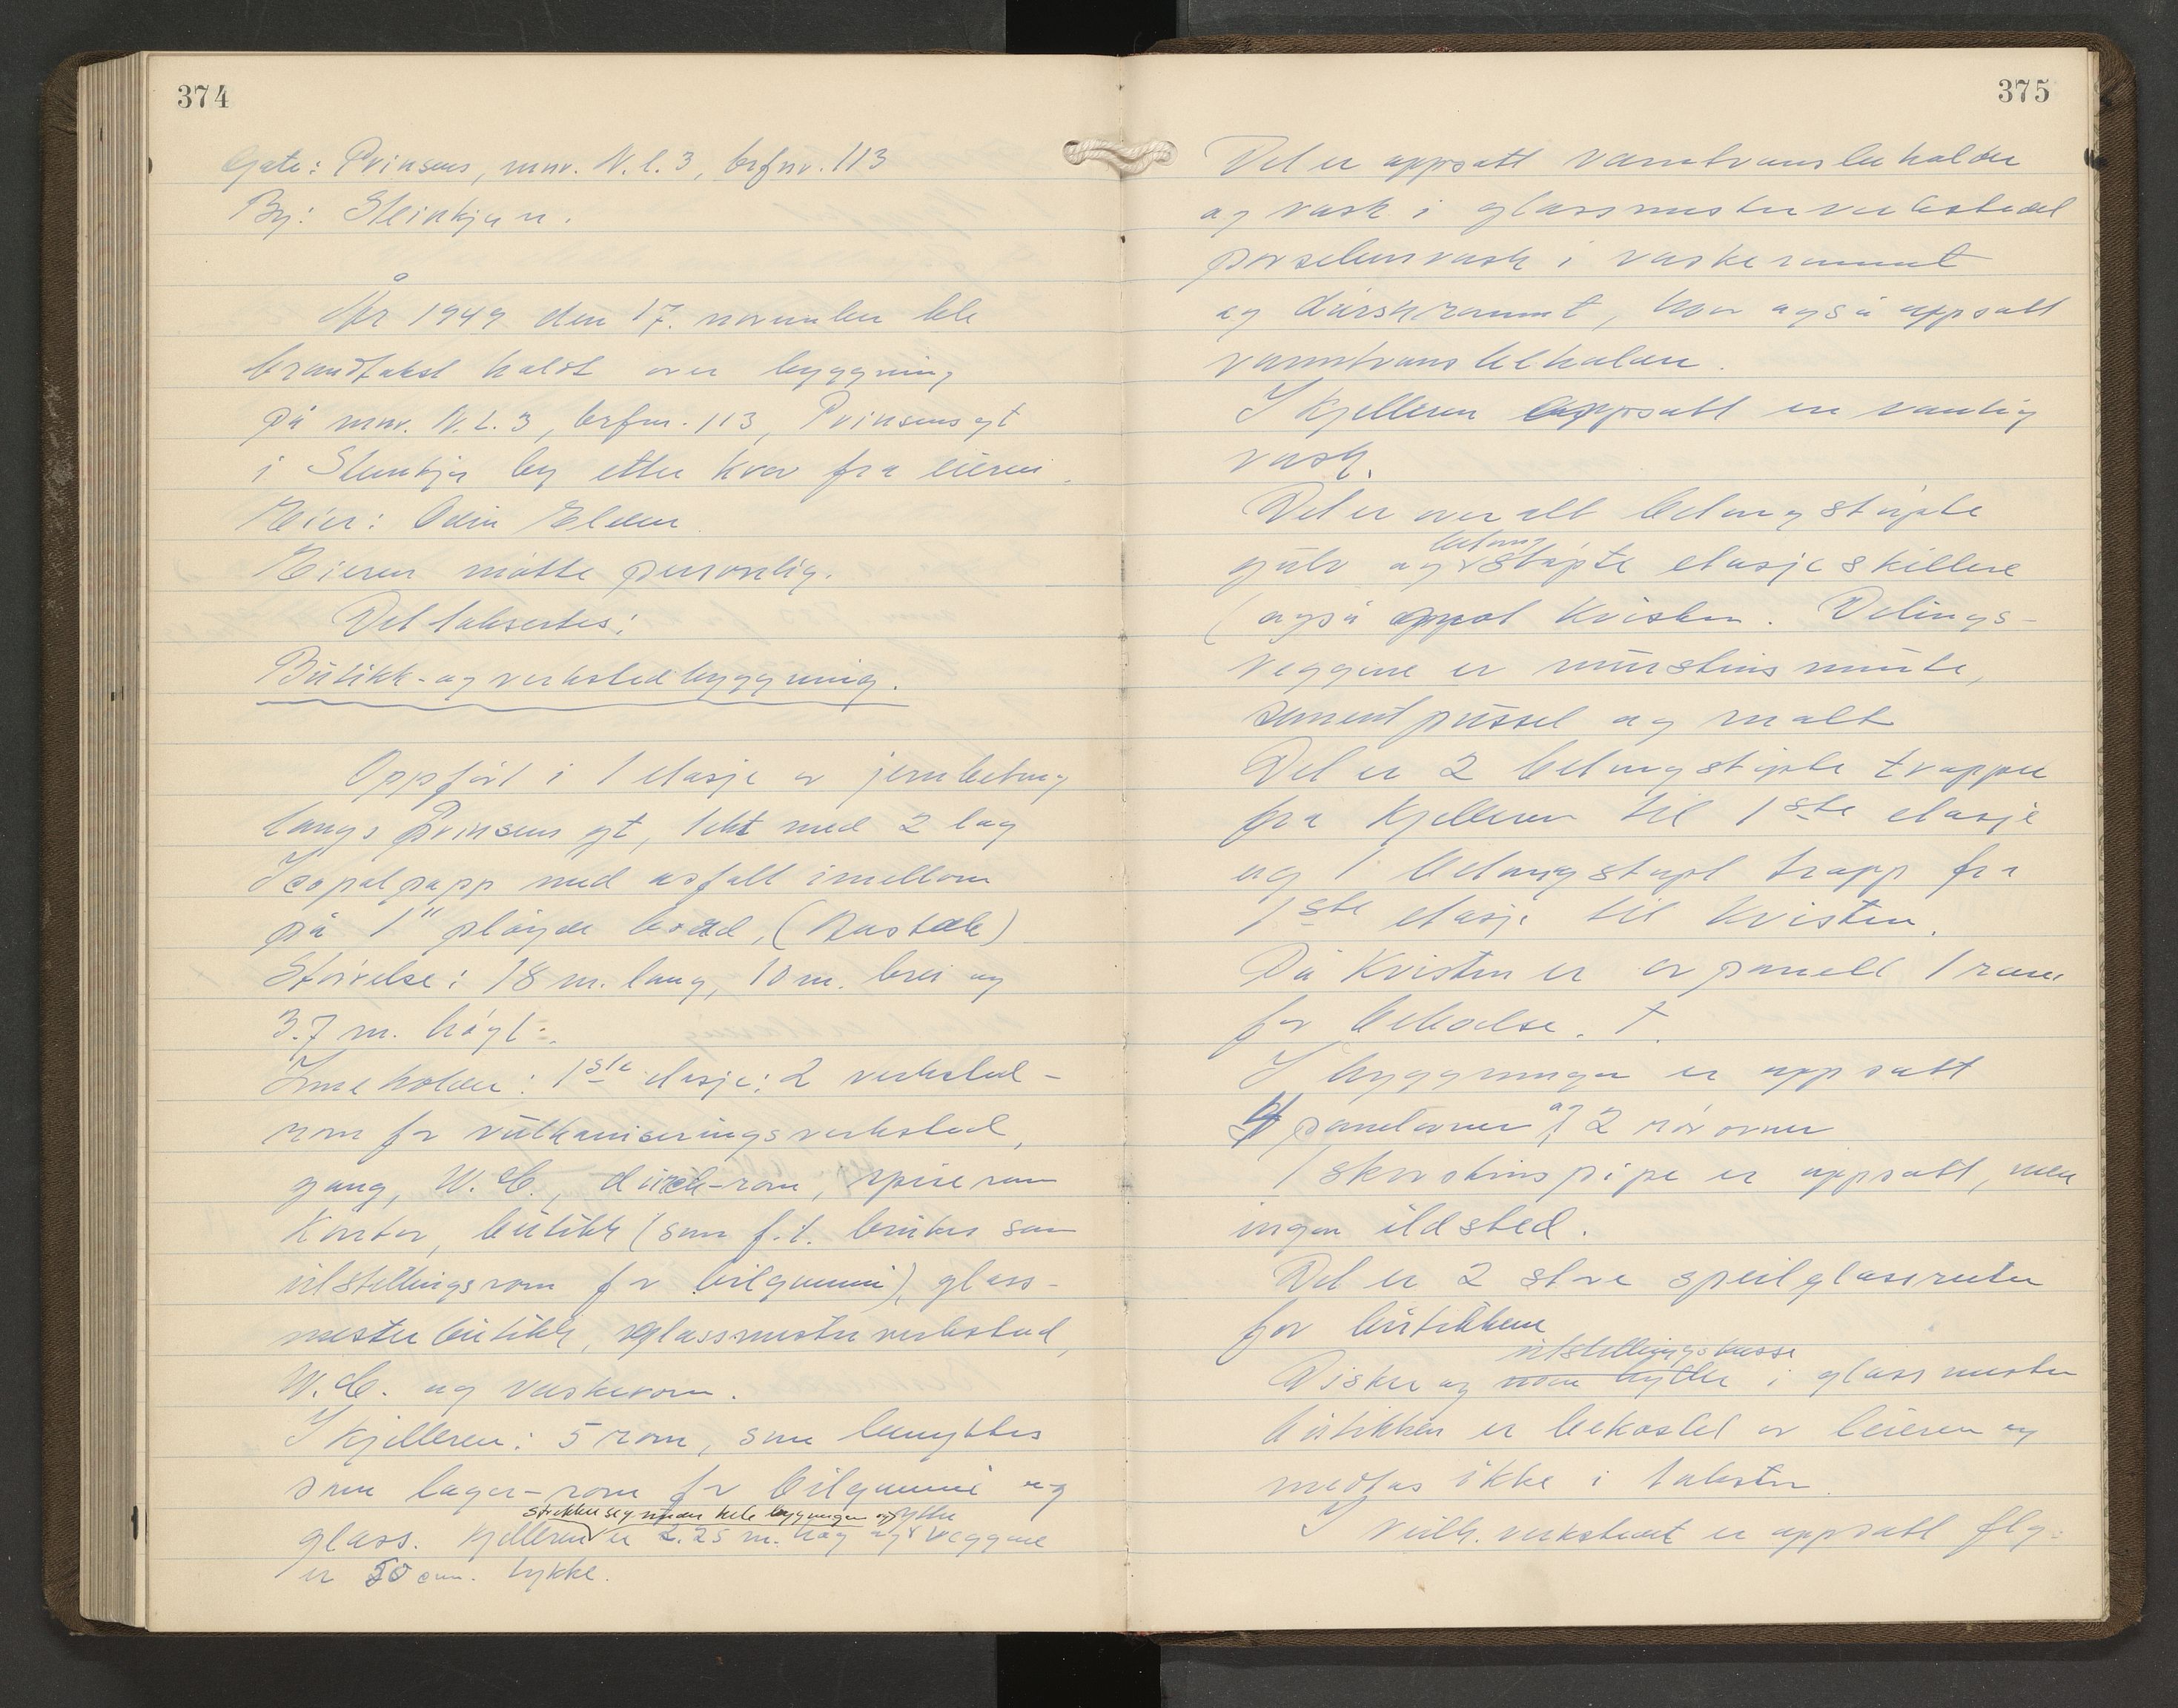 374
Gate: Prinsens, mnr. N.l.3, brfnr. 113
By: Steinkjer.
År 1949 den 17. november ble
brandtakst holdt over byggning
på mnr. N.l.3, brfnr. 113, Prinsensgt
i Steinkjer by etter krav fra eieren.
Eier: Odin Elden.
Eieren møtte personlig.
Det taksertes:
Butikk- og verkstedbyggning.
Oppført i 1 etasje av jernbetong
langs Prinsens gt, tekt med 2 lag
Icopalpapp med asfalt imellom
på 1" pløyde bord, (Rustak)
Størrelse: 18 m. lang, 10 m. brei og
3.7 m. høgt.
Inneholder: 1ste etasje: 2 verksted-
rom for vulkaniseringsverksted,
gang, W.C., dusch-rom, spiserom
Kontor, butikk (som f.t. brukes som
utstillingsrom for bilgummi), glass-
mesterbutikk, glassmesterverksted,
W.C. og vaskerom.
I kjelleren: 5 rom, som benyttes
som lager-rom for bilgummi og
strekker seg under hele byggningen og ytter
glass. Kjelleren er 2.25 m. høg og veggene
er 50 cm. tykke.
375
Det er oppsatt varmtvannsbeholder
og vask i glassmesterverkstedet
porselensvask i vaskerommet
og duschrommet, hvor også oppsatt
varmtvannsbeholder.
I Kjelleren oppsatt en vanlig
vask.
Det er overalt betongstøpte
betong
gulv og støpte etasjeskillere
(også mot Kvisten. Delings-
veggene er mursteinsmurte,
sementpusset og malt
Det er 2 betongstøpte trapper
fra Kjelleren til 1ste etasje
og 1 betongstøpt trapp fra
1ste etasje til Kvisten.
På Kvisten er avpanelt 1 rom
for beboelse. †.
I byggningen er oppsatt
4 panelovner og 2 rørovner
1 skorsteinspipe er oppsatt, men
ingen ildsted.
Det er 2 store speilglassruter
for butikkene
utstillingskasse
Disker og hyller i glassmester
butikken er bekostet av leieren og
medtas ikke i taksten.
I vulk. verkstedet er oppsatt flg.